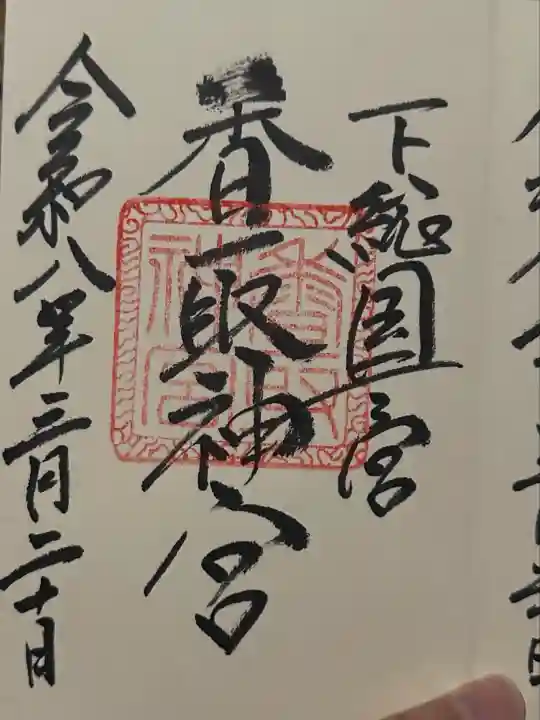 下総国一宮
香取神宮
令和八年三月二十日
香取神宮